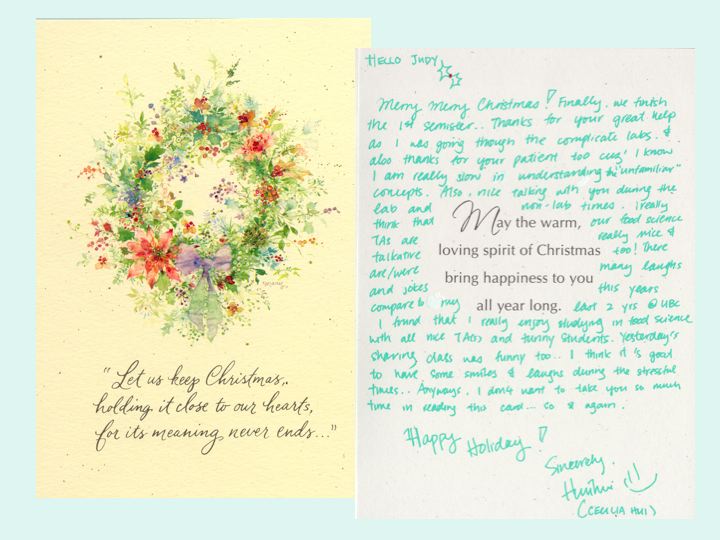 "Let us keep Christmas,
holding it close to our hearts,
for its meaning never ends..."
HELLO JUDY,
Merry Merry Christmas! Finally. we finish
the 1st semister.. Thanks for your great help
as I was going though the complicate labs. &
also thanks for your patient too cuz' I know
I am really slow in understanding the "unfamiliar"
concepts. Also, nice talking with you during the
lab and non-lab times. I really
think that our food science
TAs are really nice &
talkative too! There
are/were many laughs
and jokes this years
compare to my last 2 yrs @ UBC
May the warm,
loving spirit of Christmas
bring happiness to you
all year long.
I found that I really enjoy studying in food science
with all nice TA(s) and funny students. Yesterday's
sharing class was funny too.. I think it's good
to have some smiles & laughs during the stressful
times.. Anyways, I don't want to take you so much
time in reading this card... so & again.
Happy Holiday!
Sincerely,
(CECILIA HUI)